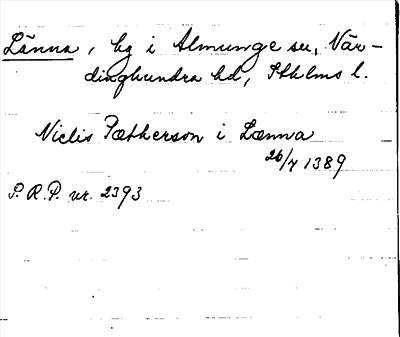 Länna, by i Almunge sn, När-
dinghundra hd, Sthlms l.
Niclis Pætherson i Lænna
26/4 1389
S. R. P. nr. 2393